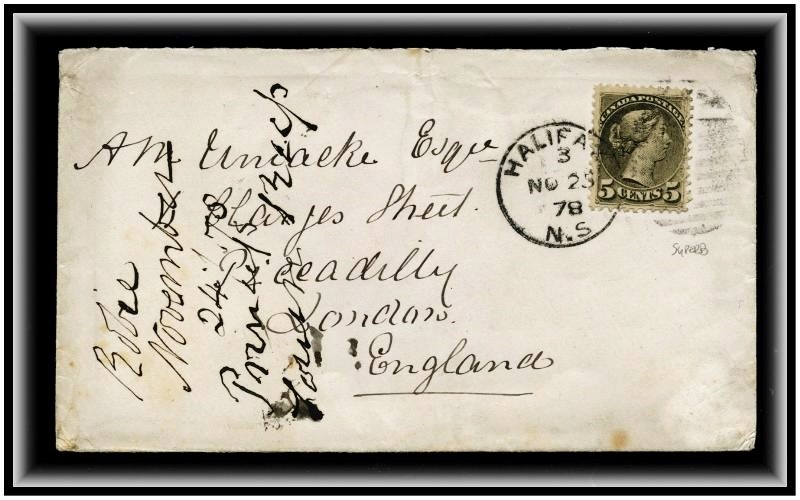 AM Uniacke Esqre
Clarges Street.
Piccadilly
London.
England
Robie
November
24th/78
CANADA POSTAGE
5 CENTS 5
HALIFAX
3
NO 25
78
N.S
SUPERB